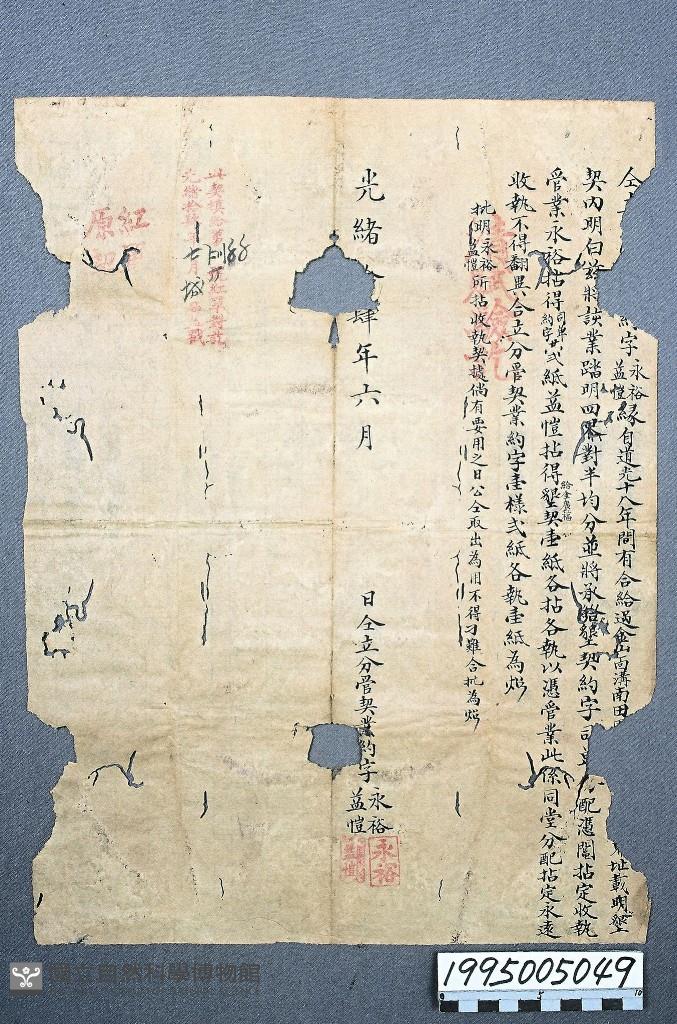 仝立 約字永裕益愷緣自道光十八年間有合給過金山面溝南田 址載明墾
契內明白茲將該業踏明四界對半均分並將承給墾契約字司單 配憑鬮拈定收執
管業永裕拈得司單約字共弍紙益愷拈得給金廣福墾契壹紙各拈各執以憑管業此係同堂分配拈定永遠
收執不得翻異合立分管契業約字壹樣弍紙各執壹紙為炤
批明永裕益愷所拈收執契據倘有要用之日公仝取出為用不得刁難合批為炤
光緒 肆年六月 日仝立分管契業約字永裕益愷
永裕
益愷
此契換給第 號紅單對訖
光緒 年七月 日戳
紅
原
國立自然科學博物館
1995005049
0 5 10